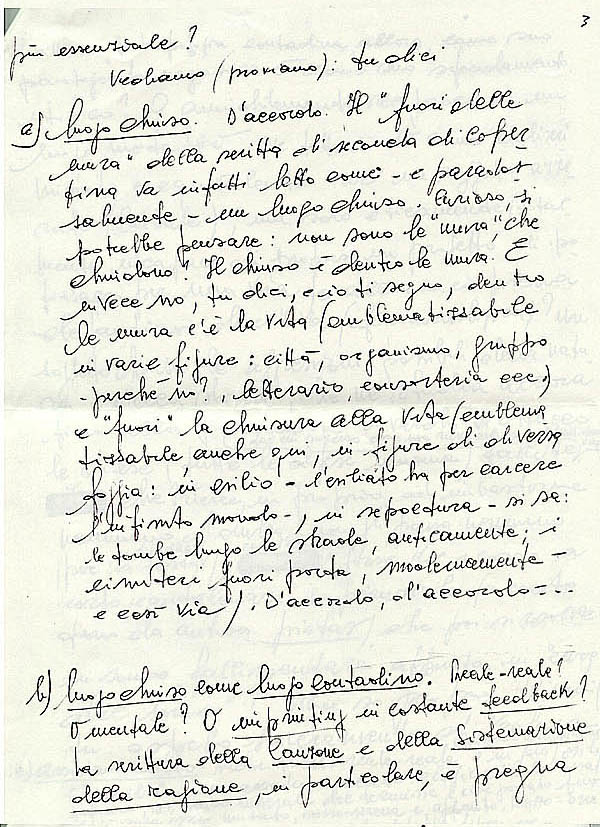 3
più essenziale?
Vediamo (proviamo): tu dici
a) luogo chiuso. D'accordo. Il "fuori delle
mura" della scritta di seconda di coper
tina va infatti letto come - e paradós
salmente - un luogo chiuso. Curioso, si
potrebbe pensare: non sono le "mura" che
chiudono? Il chiuso è dentro le mura. E
invece no, tu dici, e io ti seguo, dentro
le mura c'è la vita (emblematizzabile
in varie figure: città, organismo, gruppo
- perché no?, letterario, consorteria ecc.)
e "fuori" la chiusura alla vita (emblema
tizzabile, anche qui, in figure di diversa
foggia: in esilio - l'esiliato ha per carcere
l'infinito mondo -, in sepoltura - si sa:
le tombe lungo le strade, anticamente; i
cimiteri fuori porta, modernamente -
e così via). D'accordo, d'accordo - ..
b) luogo chiuso come luogo contadino. Ireale-reale?
O mentale? O imprinting in costante feedback?
La scrittura della Canzone e della Sistemazione
della ragione, in particolare, è pregna